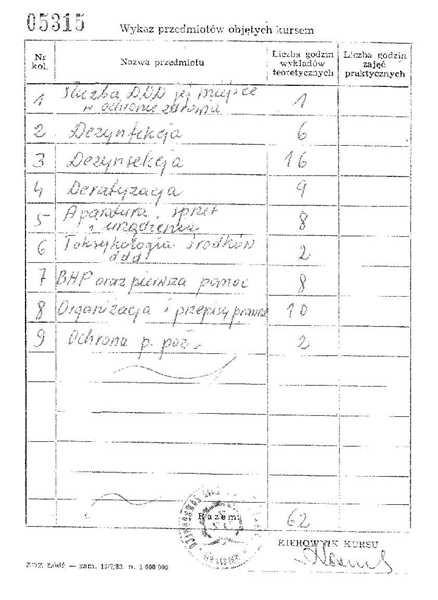 05315
Wykaz przedmiotów objętych kursem
Nr kol.
Nazwa przedmiotu
Liczba godzin wykładów teoretycznych
Liczba godzin zajęć praktycznych
1 Służba DDD jej miejsce w ochronie zdrowia 1
2 Dezynfekcja 6
3 Dezynsekcja 16
4 Deratyzacja 9
5 Aparatura, sprzęt i urządzenia 8
6 Toksykologia środków ddd 2
7 BHP oraz pierwsza pomoc 8
8 Organizacja i przepisy prawne 10
9 Ochrona p. poż. 2
Razem 62
KIEROWNIK KURSU
ZDZ Łódź — zam.